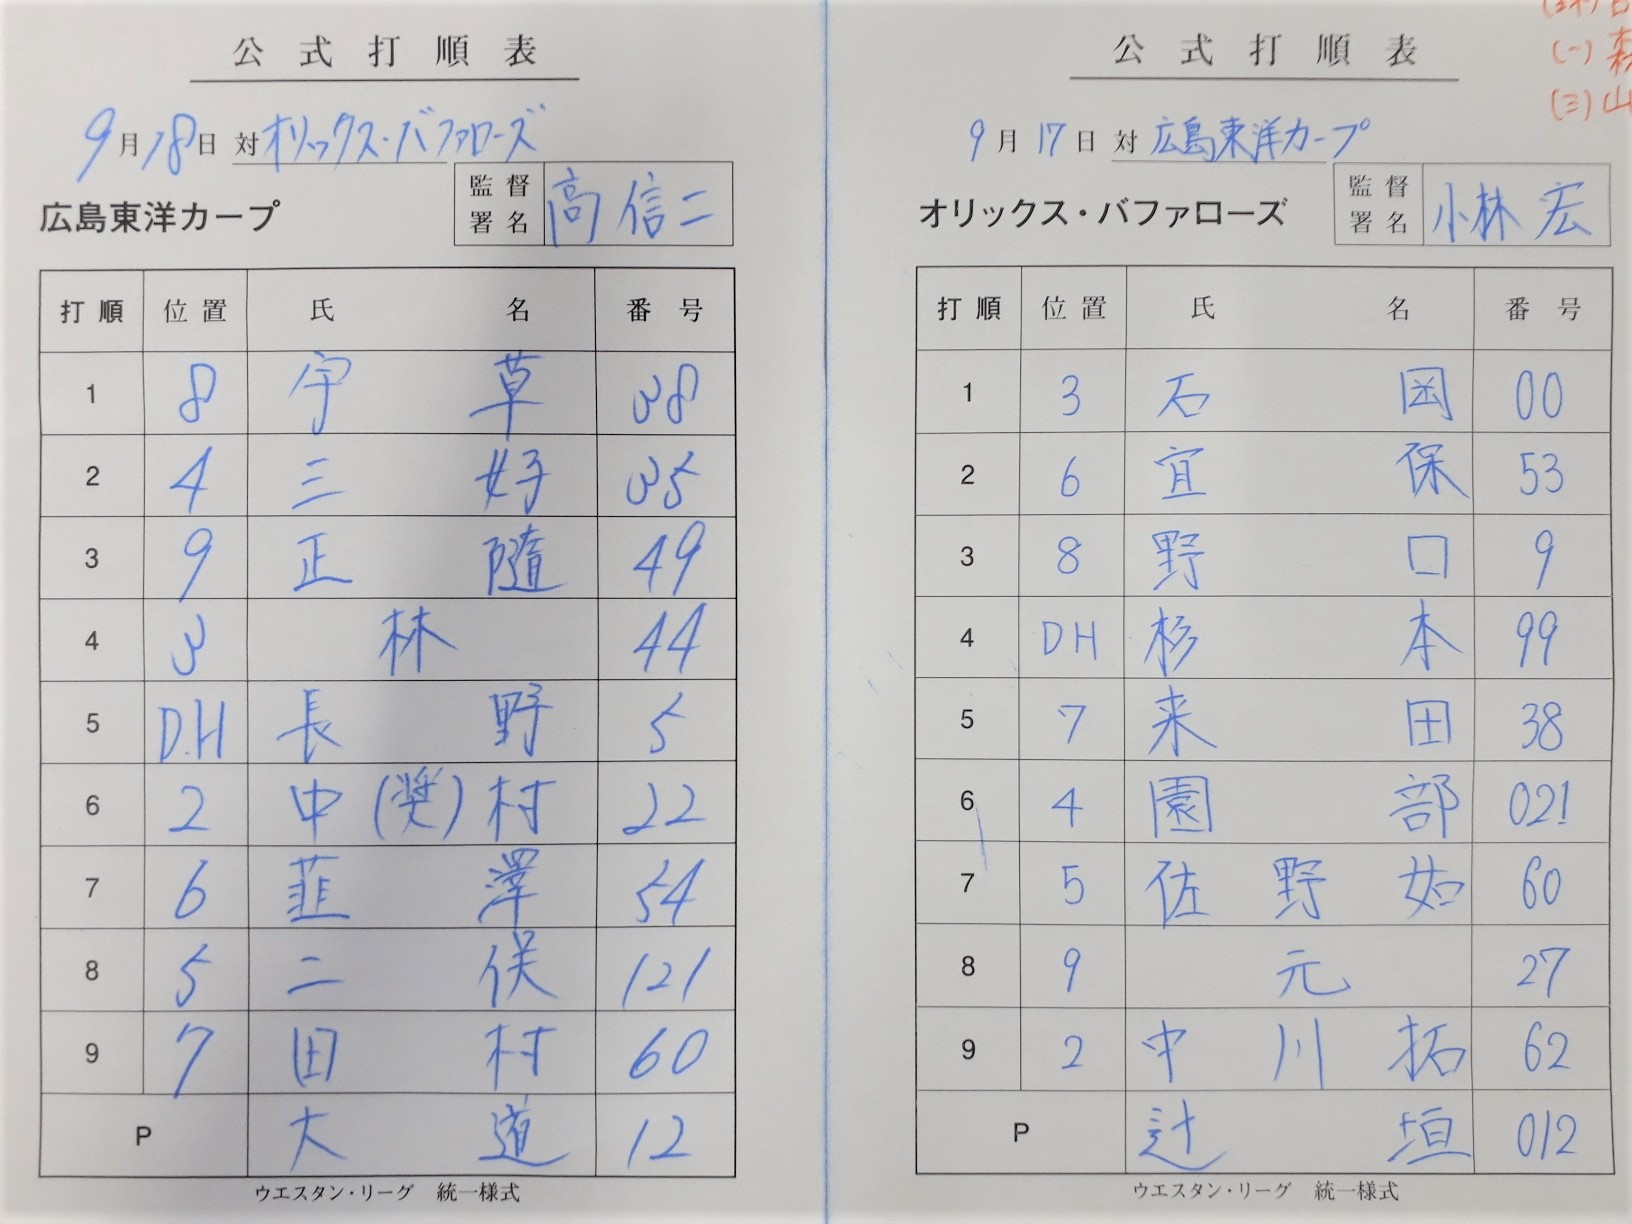 公式打順表
9月18日 対オリックス・バファローズ
広島東洋カープ 監督署名 高信二
打順 位置 氏名 番号
1 8 宇草 38
2 4 三好 35
3 9 正隨 49
4 3 林 44
5 D.H 長野 5
6 2 中(奨)村 22
7 6 韮澤 54
8 5 二俣 121
9 7 田村 60
P 大道 12
ウエスタン・リーグ 統一様式
公式打順表
9月17日 対 広島東洋カープ
オリックス・バファローズ 監督署名 小林宏
打順 位置 氏名 番号
1 3 石岡 00
2 6 宜保 53
3 8 野口 9
4 DH 杉本 99
5 7 来田 38
6 4 園部 021
7 5 佐野如 60
8 9 元 27
9 2 中川拓 62
P 辻垣 012
ウエスタン・リーグ 統一様式
(一) 森
(三) 山